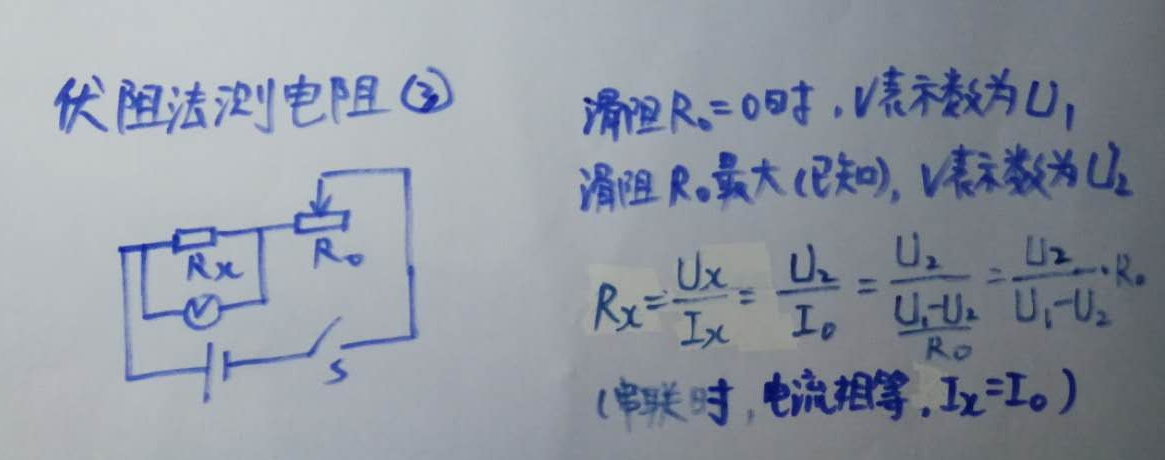 伏阻法测电阻③
滑阻R₀=0时,V表示数为U₁
滑阻R₀最大(已知),V表示数为U₂
Rx
R₀
V
S
Rx=Ux/Ix=U₂/I₀=U₂/((U₁-U₂)/R₀)=U₂/(U₁-U₂)·R₀
(串联时,电流相等,Ix=I₀)